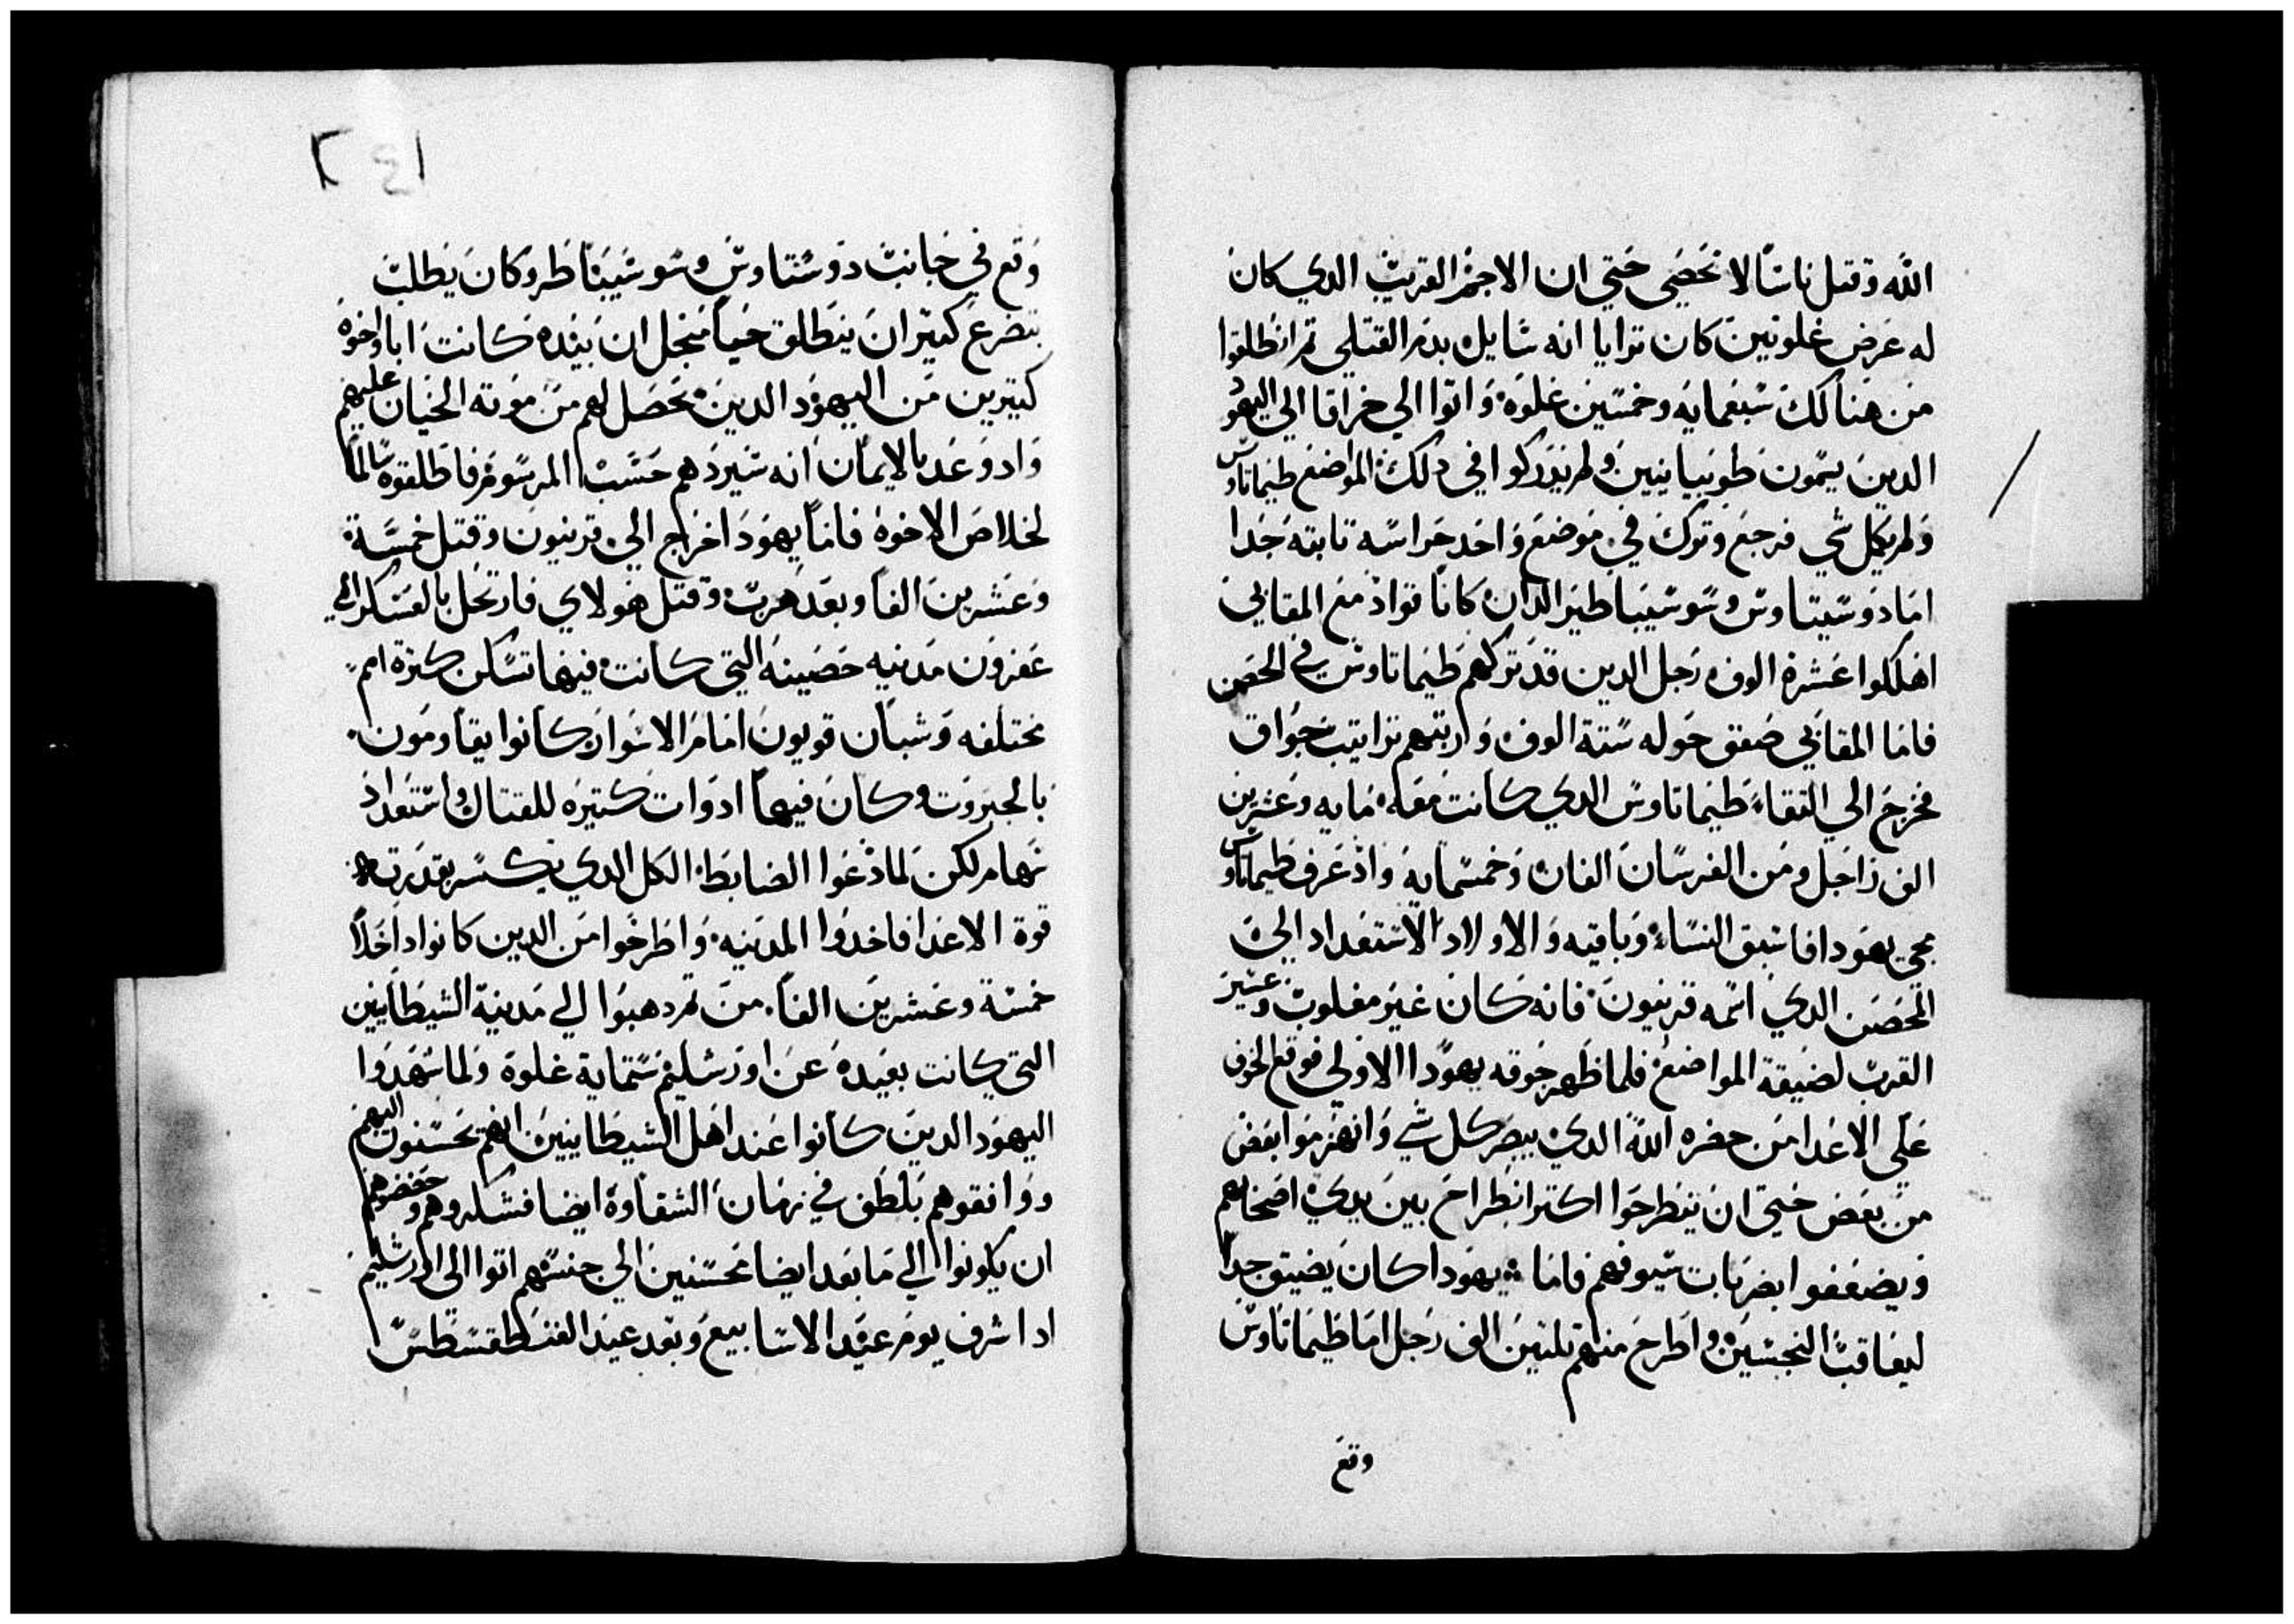 الله وقتل ناسًا لا تحصى حتي ان الاجم القريب الدي كان
له عرض غلوتين كان ترايا انه سايل بدم القتلي تم انطلقوا
من هنالك سبعمايه وخمسين غلوه واتوا الي خراقا الي اليهود
الدين يسمون طوبيانيين ولم يدركوا في دلك المواضع طيماتاوس
ولم يكمل شي فرجع وترك في موضع واحد حراسه تابته جدا
اما دوسيتاوس وسوسيباطير الدان كانا قواد مع المقابي
اهلكوا عشرة الوف رجل الدين قد تركهم طيماتاوس في الحصن
فاما المقابي صفق حوله ستة الوف ورتبهم تراتيب جواق
فخرج الي التقاء طيماتاوس الدي كانت معه مايه وعشرين
الف راجل ومن الفرسان الفان وخمسمايه واد عرف طيماتاوس
مجي يهودا فاسبق النساء وباقيه والاولاد الاستعداد الي
الحصن الدي اسمه قرنيون فانه كان غير مغلوب وعسير
القرب لضيقة المواضع فلما ظهر جوقه يهودا الاولي فوقع الخوف
علي الاعدا من حضره الله الدي يبصر كل شي وانهزموا بعض
من بعض حتي ان ينطرحوا اكتر انطراح بين يدي اصحابهم
ويضعفوا بضربات سيوفهم فاما يهودا كان يضيق جدا
ليعاقب النجسين واطرح منهم تلتين الف رجل اما طيماتاوس
وقع
وقع في جانب دوستاوس وسوسيباطر وكان يطلب
بتضرع كبير ان ينطلق حيا منجل ان بيده كانت ابا واخوة
كتيرين من اليهود الدين تحصل لهم من موته الخيان عليهم
واد وعد بالايمان انه سيردهم حسب المرسوم فاطلقوه سالما
لخلاص الاخوة فاما يهودا خرج الي قرنيون وقتل خمسة
وعشرين الفا وبعد هرب وقتل هولاي فارتحل بالعسكر الي
عفرون مدنيه حصينه التي كانت فيها تسكن كترة امم
مختلفه وشبان قويون امام الاسوار كانوا يقاومون
بالجبروت وكان فيها ادوات كتيره للقتال واستعداد
سهام لكن لما دعوا الضابط الكل الدي يكسر بقدرته
قوة الاعدا فاخدوا المدنيه واطرحوا من الدين كانوا داخلا
خمسة وعشرين الفا من تم دهبوا الي مدنية الشيطانيين
التي كانت بعيده عن اورشليم ستماية غلوة ولما شهدوا
اليهود الدين كانوا عند اهل الشيطانيين انهم يحسنون اليهم
ووافقوهم بلطف في زمان الشقاوة ايضا فشكروهم وحضوهم
ان يكونوا الي ما بعد ايضا محسنين الي جنسهم اتوا الي اورشليم
ادا شرف يوم عيد الاسابيع وبعد عيد الفنطقسطس